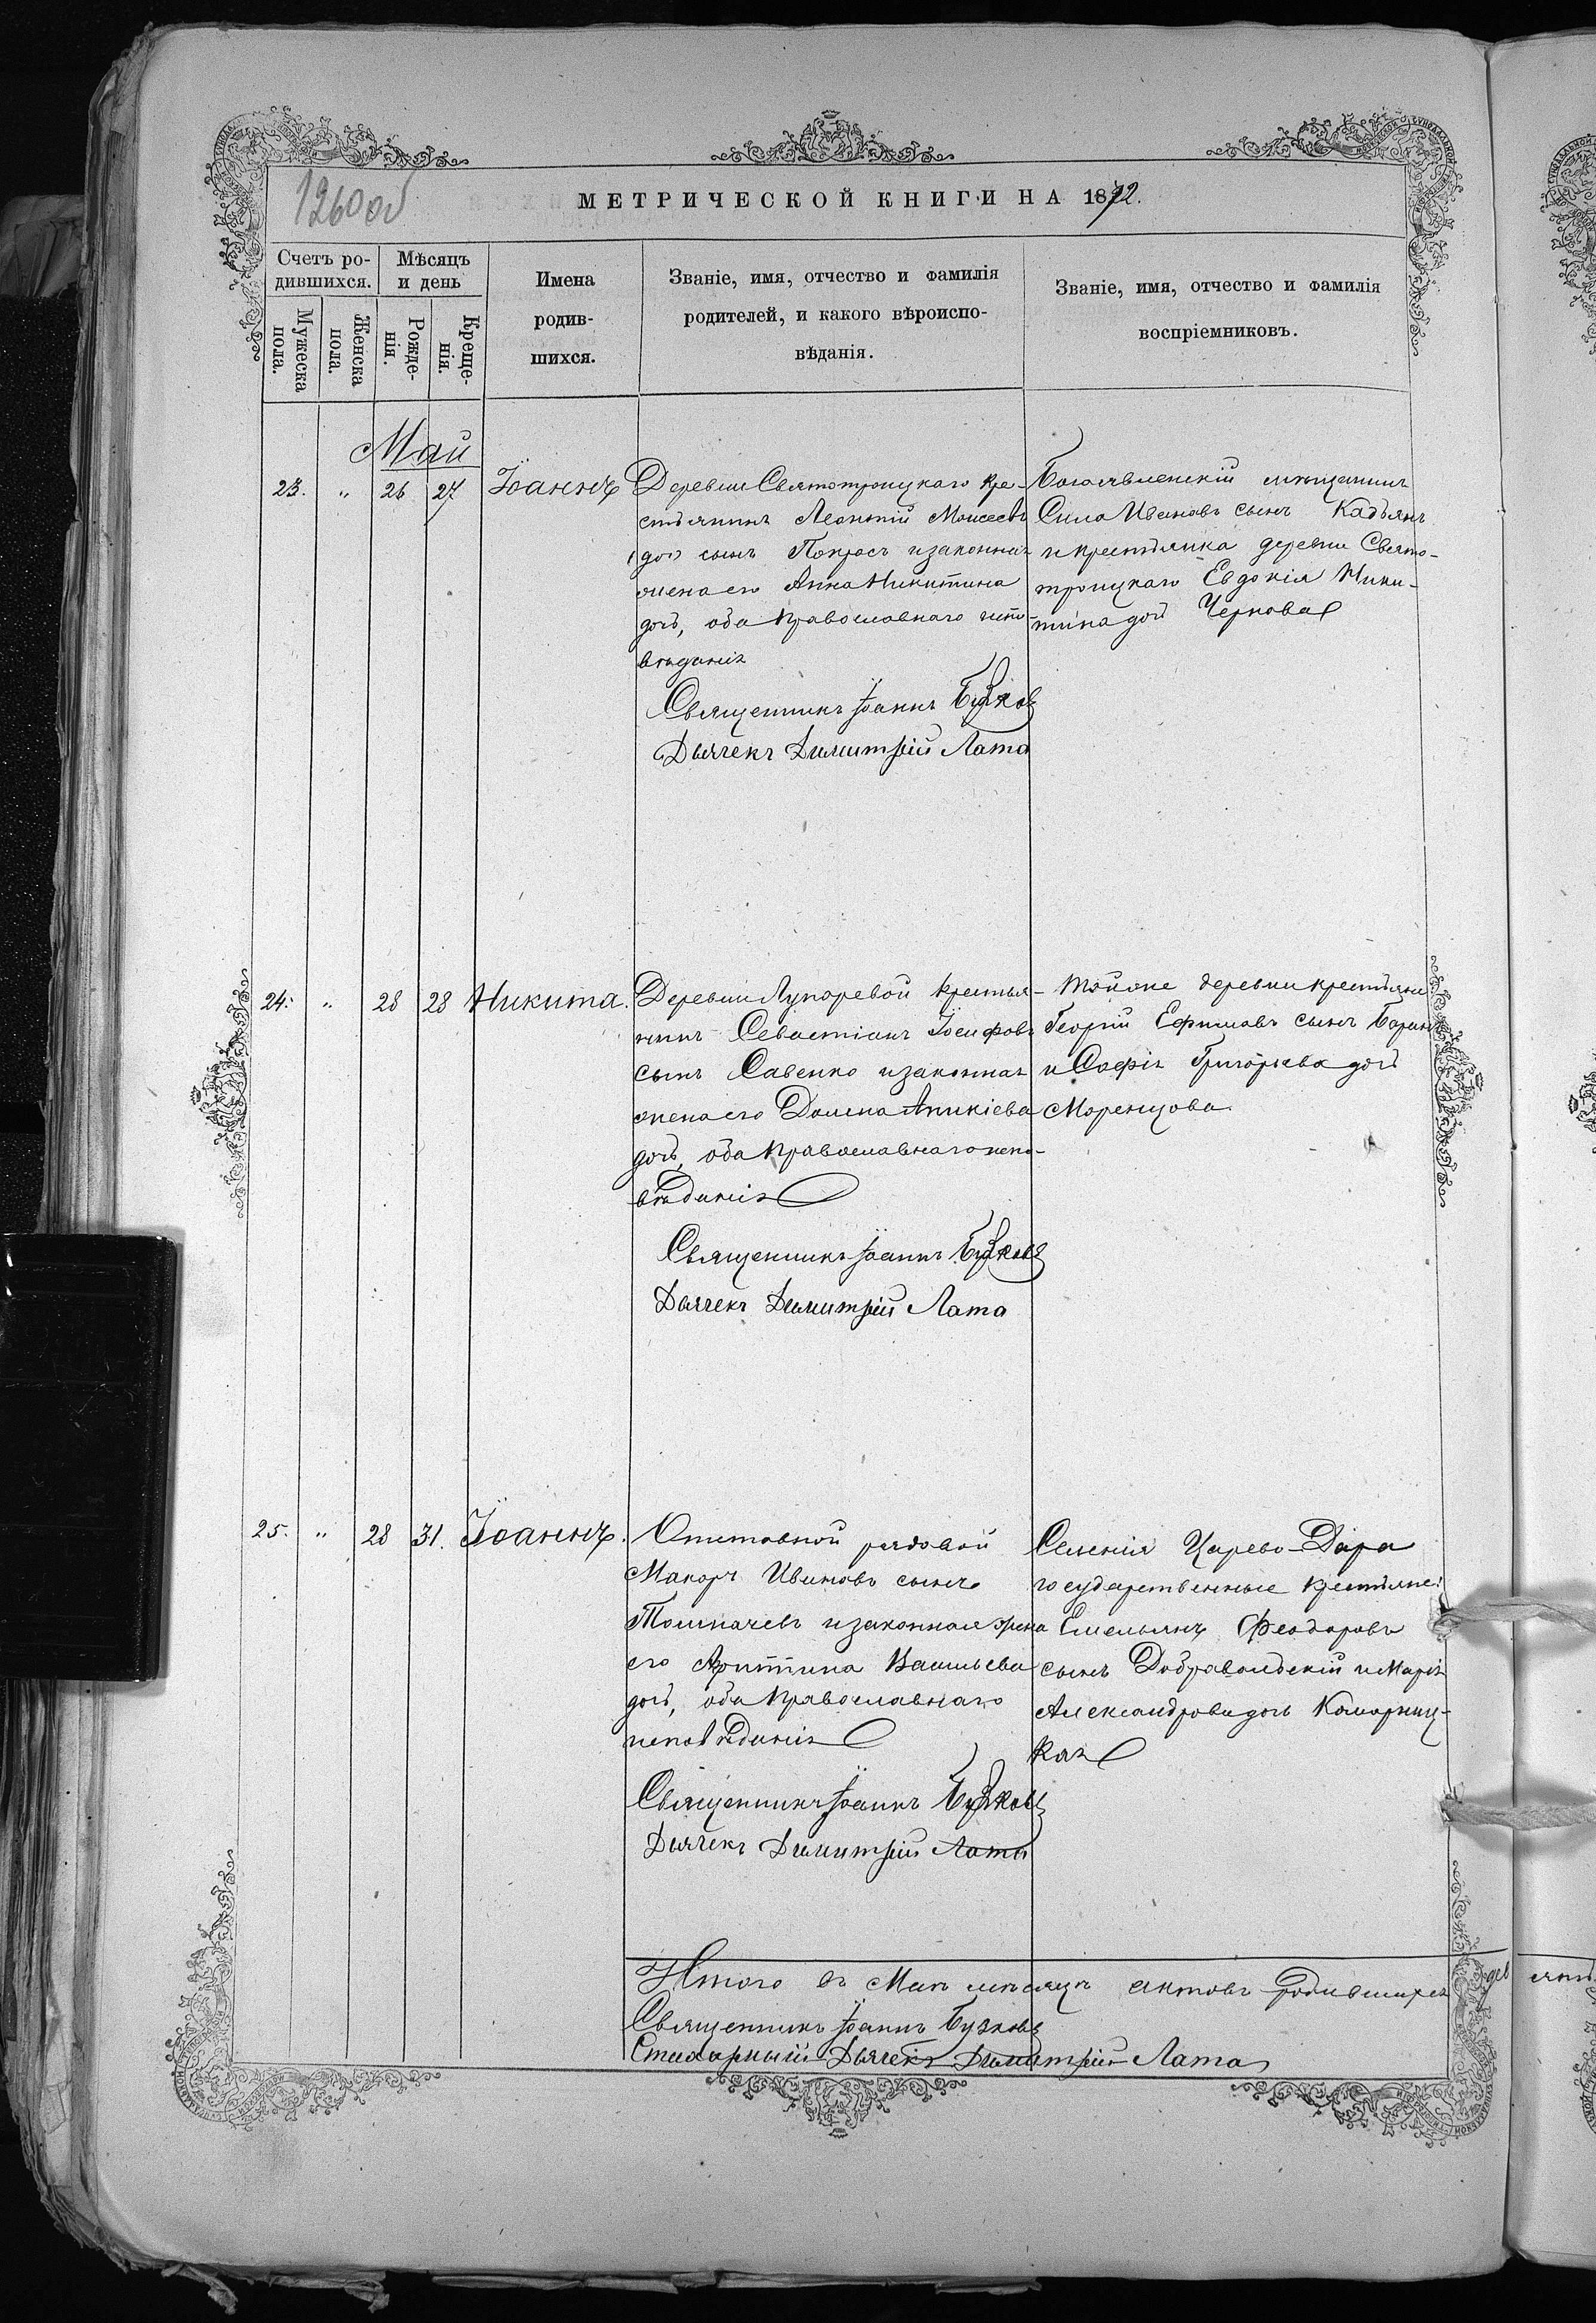 1260 об
МЕТРИЧЕСКОЙ КНИГИ НА 1872.
Счетъ ро-
дившихся.
Мѣсяцъ
и день
Мужеска
пола.
Женска
пола.
Рожде-
нія.
Креще-
нія.
Имена
родив-
шихся.
Званіе, имя, отчество и фамилія
родителей, и какого вѣроиспо-
вѣданія.
Званіе, имя, отчество и фамилія
воспріемниковъ.
Май
23. " 26 27 Іоаннъ
Деревни Святотроицкаго кре-
стьянинъ Леонтій Моисеевъ
сынъ и законная
жена его Анна Никитина
дочь, оба православнаго испо-
вѣданія
Священникъ Іоаннъ Бузковъ
Дьячекъ Димитрій Лата
Богоявленскій мѣщанинъ
Сила Ивановъ сынъ Кадьянъ
и крестьянка деревни Свято-
троицкаго Евдокія Ники-
тина дочь Чернова
24. " 28 28 Никита.
Деревни Лупаревой крестья-
нинъ Севастіанъ Іосифовъ
сынъ Савенко и законная
жена его Домна Аникіева
дочь, оба православнаго испо-
вѣданія
Священникъ Іоаннъ Бузковъ
Дьячекъ Димитрій Лата
Той же деревни крестьяни:
Георгій Ефимовъ сынъ Баранъ
и Софія Григорьева дочь
Моренцова
25. " 28 31. Іоаннъ.
Отставной рядовой
Макаръ Ивановъ сынъ
Толмачевъ и законная жена
его Христина Васильева
дочь, оба православнаго
исповѣданія
Священникъ Іоаннъ Бузковъ
Дьячекъ Димитрій Лата
Селенія Царево-Дара
государственные крестьяне:
Емельянъ Феодоровъ
сынъ Добравольскій и Марія
Александрова дочь Комарниц-
кая
Итого въ Маѣ мѣсяцѣ актовъ родившихся
Священникъ Іоаннъ Бузковъ
Стихарный Дьячекъ Димитрій Лата